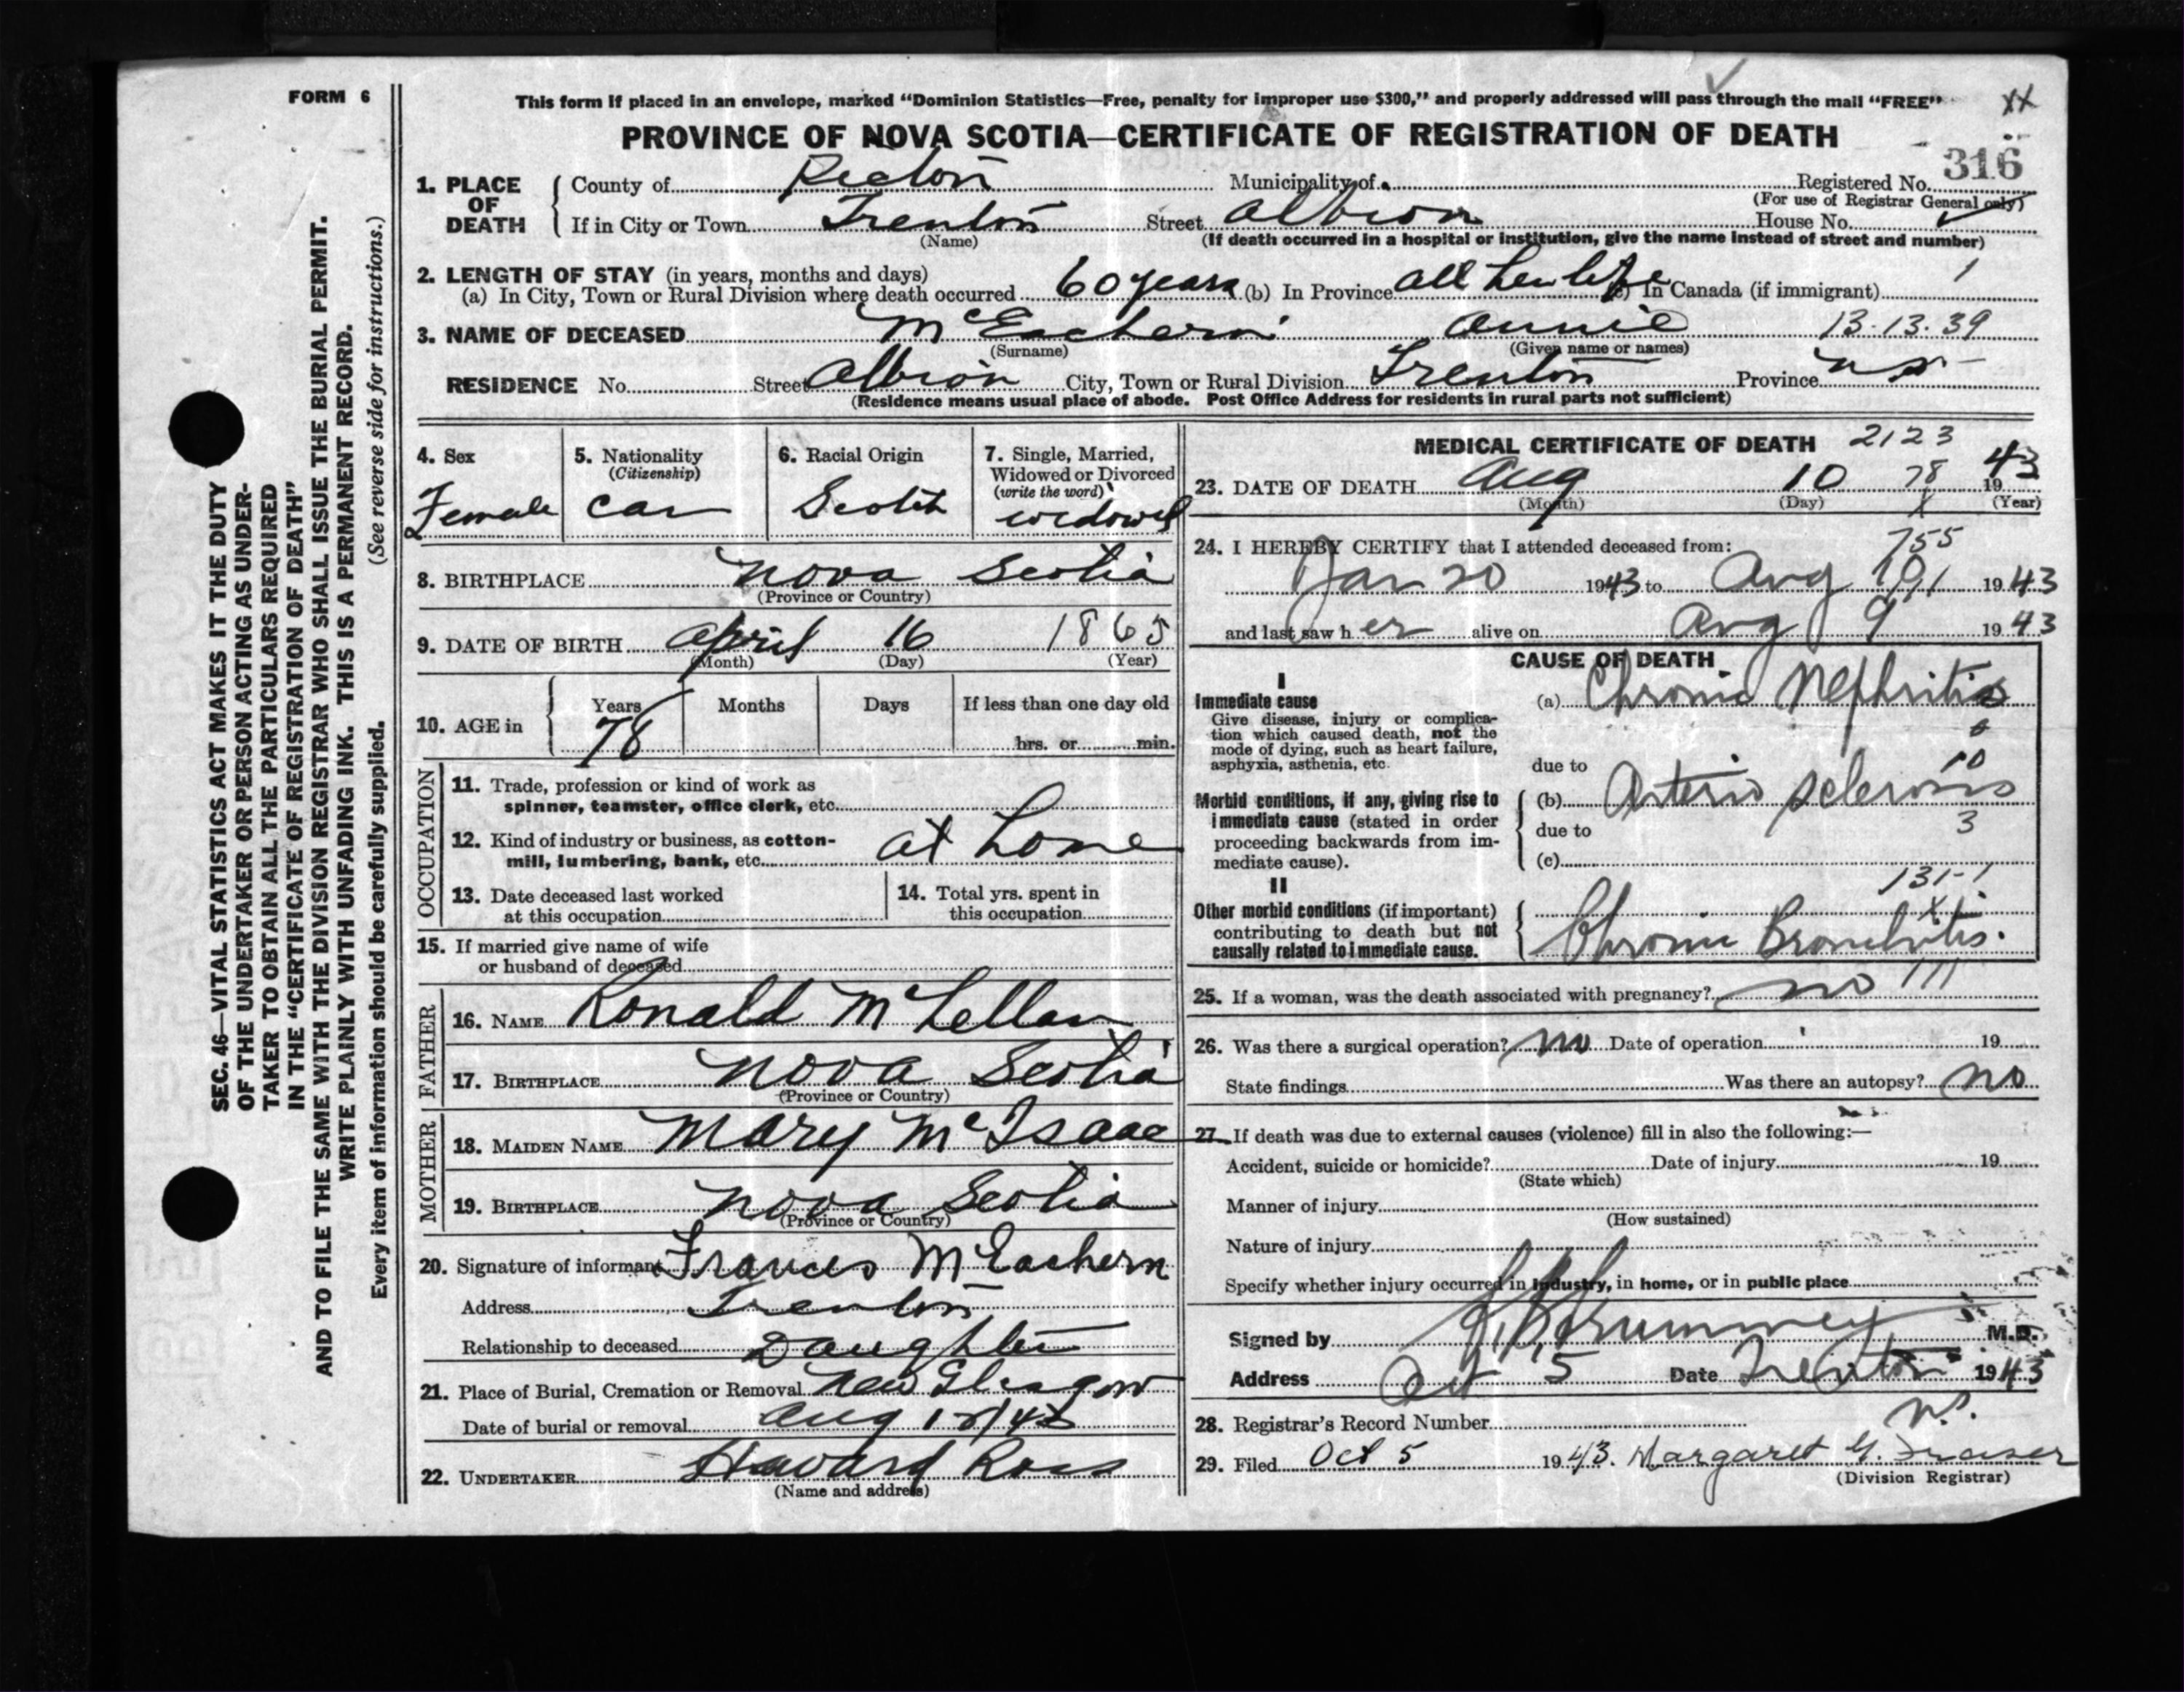 FORM 6
This form if placed in an envelope, marked "Dominion Statistics—Free, penalty for improper use $300," and properly addressed will pass through the mail "FREE"
xx
PROVINCE OF NOVA SCOTIA—CERTIFICATE OF REGISTRATION OF DEATH
316
1. PLACE OF DEATH
County of Pictou Municipality of Registered No.
(For use of Registrar General only)
If in City or Town Trenton Street Albion House No.
(Name)
(If death occurred in a hospital or institution, give the name instead of street and number)
2. LENGTH OF STAY (in years, months and days)
(a) In City, Town or Rural Division where death occurred 60 years (b) In Province all her life (c) In Canada (if immigrant)
3. NAME OF DECEASED McEachern Annie 13-13-39
(Surname) (Given name or names)
RESIDENCE No. Street Albion City, Town or Rural Division Trenton Province NS
(Residence means usual place of abode. Post Office Address for residents in rural parts not sufficient)
4. Sex
Female
5. Nationality
(Citizenship)
Can
6. Racial Origin
Scotch
7. Single, Married,
Widowed or Divorced
(write the word)
widowed
8. BIRTHPLACE Nova Scotia
(Province or Country)
9. DATE OF BIRTH April 16 1865
(Month) (Day) (Year)
10. AGE in
Years Months Days If less than one day old
78 hrs. or min.
OCCUPATION
11. Trade, profession or kind of work as
spinner, teamster, office clerk, etc.
12. Kind of industry or business, as cotton-
mill, lumbering, bank, etc. at home
13. Date deceased last worked
at this occupation
14. Total yrs. spent in
this occupation
15. If married give name of wife
or husband of deceased
FATHER
16. NAME Ronald McLellan
17. BIRTHPLACE Nova Scotia
(Province or Country)
MOTHER
18. MAIDEN NAME Mary McIsaac
19. BIRTHPLACE Nova Scotia
(Province or Country)
20. Signature of informant Frances McEachern
Address Trenton
Relationship to deceased Daughter
21. Place of Burial, Cremation or Removal New Glasgow
Date of burial or removal Aug
22. UNDERTAKER Havard Ross
(Name and address)
MEDICAL CERTIFICATE OF DEATH 2123
23. DATE OF DEATH Aug 10 78 1943
(Month) (Day) (Year)
x
24. I HEREBY CERTIFY that I attended deceased from:
755
Jan 20 1943 to Aug 10 1943
and last saw her alive on Aug 9 1943
CAUSE OF DEATH
I
Immediate cause
Give disease, injury or complica-
tion which caused death, not the
mode of dying, such as heart failure,
asphyxia, asthenia, etc.
(a) Chronic Nephritis
due to
10
Morbid conditions, if any, giving rise to
immediate cause (stated in order
proceeding backwards from im-
mediate cause).
(b) Arterio sclerosis
due to
3
(c)
131-1
x
II
Other morbid conditions (if important)
contributing to death but not
causally related to immediate cause.
Chronic Bronchitis.
111
25. If a woman, was the death associated with pregnancy? no
26. Was there a surgical operation? no Date of operation 19
State findings Was there an autopsy? no
27. If death was due to external causes (violence) fill in also the following:—
Accident, suicide or homicide? Date of injury 19
(State which)
Manner of injury
(How sustained)
Nature of injury
Specify whether injury occurred in industry, in home, or in public place
Signed by M.D.
Address Oct 5 Date Trenton 1943
N.S.
28. Registrar's Record Number
29. Filed Oct 5 1943. Margaret G. Fraser
(Division Registrar)
SEC. 46—VITAL STATISTICS ACT MAKES IT THE DUTY
OF THE UNDERTAKER OR PERSON ACTING AS UNDER-
TAKER TO OBTAIN ALL THE PARTICULARS REQUIRED
IN THE "CERTIFICATE OF REGISTRATION OF DEATH"
AND TO FILE THE SAME WITH THE DIVISION REGISTRAR WHO SHALL ISSUE THE BURIAL PERMIT.
WRITE PLAINLY WITH UNFADING INK. THIS IS A PERMANENT RECORD.
(See reverse side for instructions.)
Every item of information should be carefully supplied.